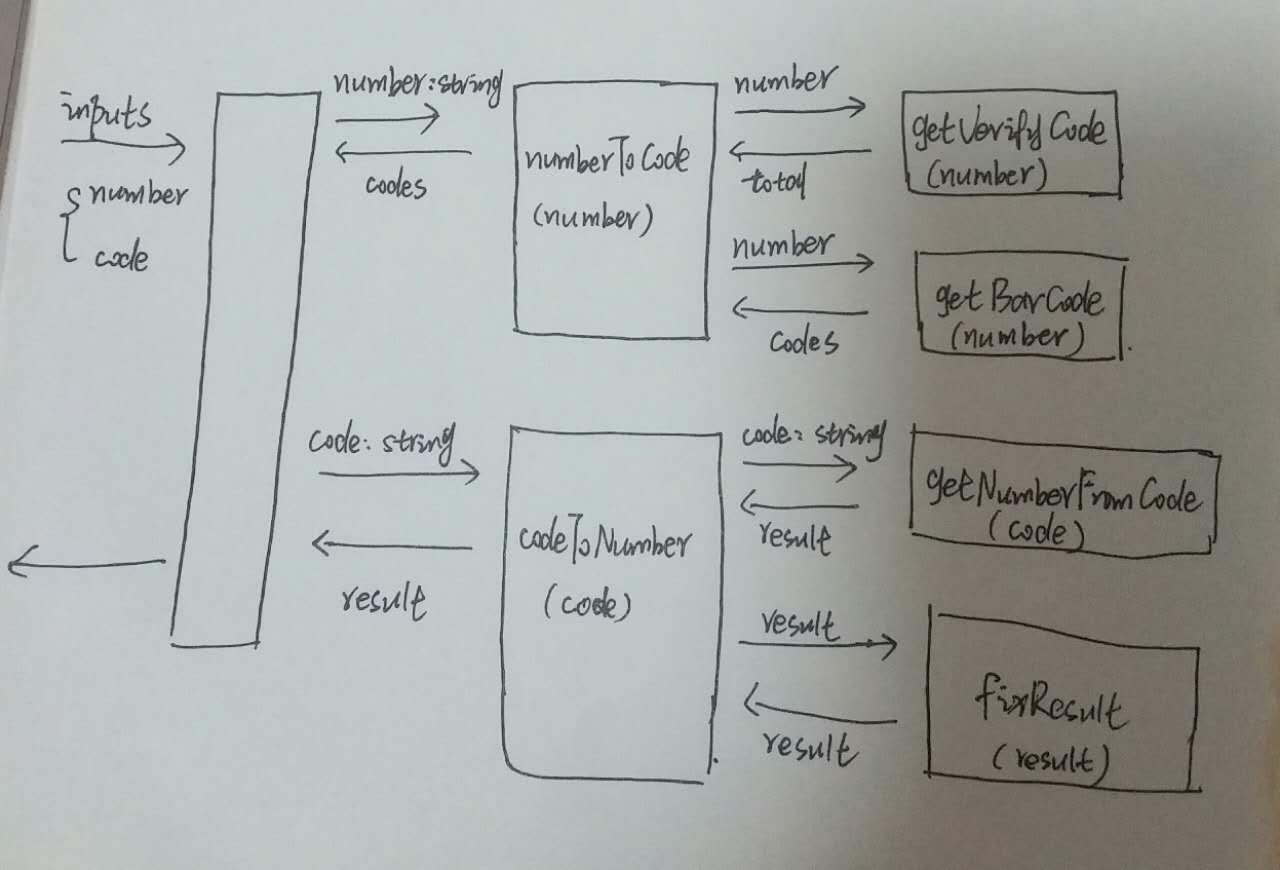 inputs
number
code
number:string
codes
numberToCode
(number)
number
total
getVerifyCode
(number)
number
codes
getBarCode
(number)
code: string
result
codeToNumber
(code)
code: string
result
getNumberFromCode
(code)
result
result
fixResult
(result)